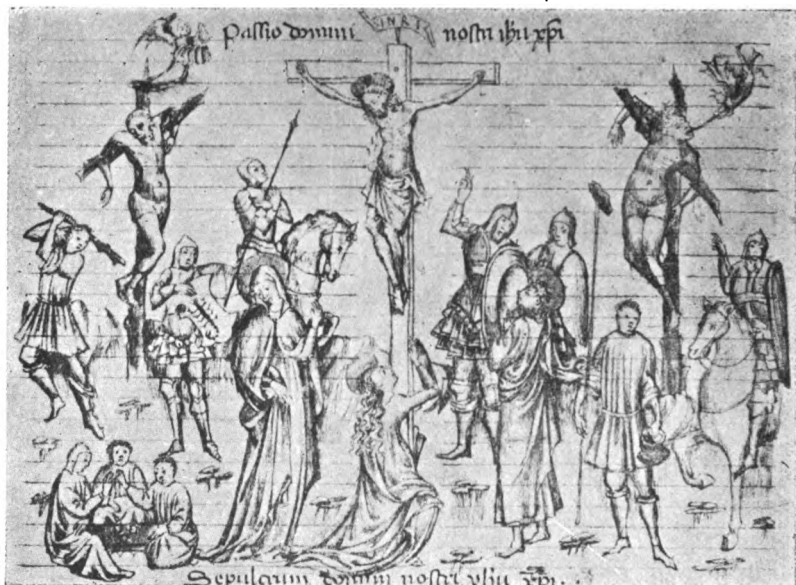 INRI
Passio domini nostri ihu xpi
Sepulcrum domini nostri yhu xpi.